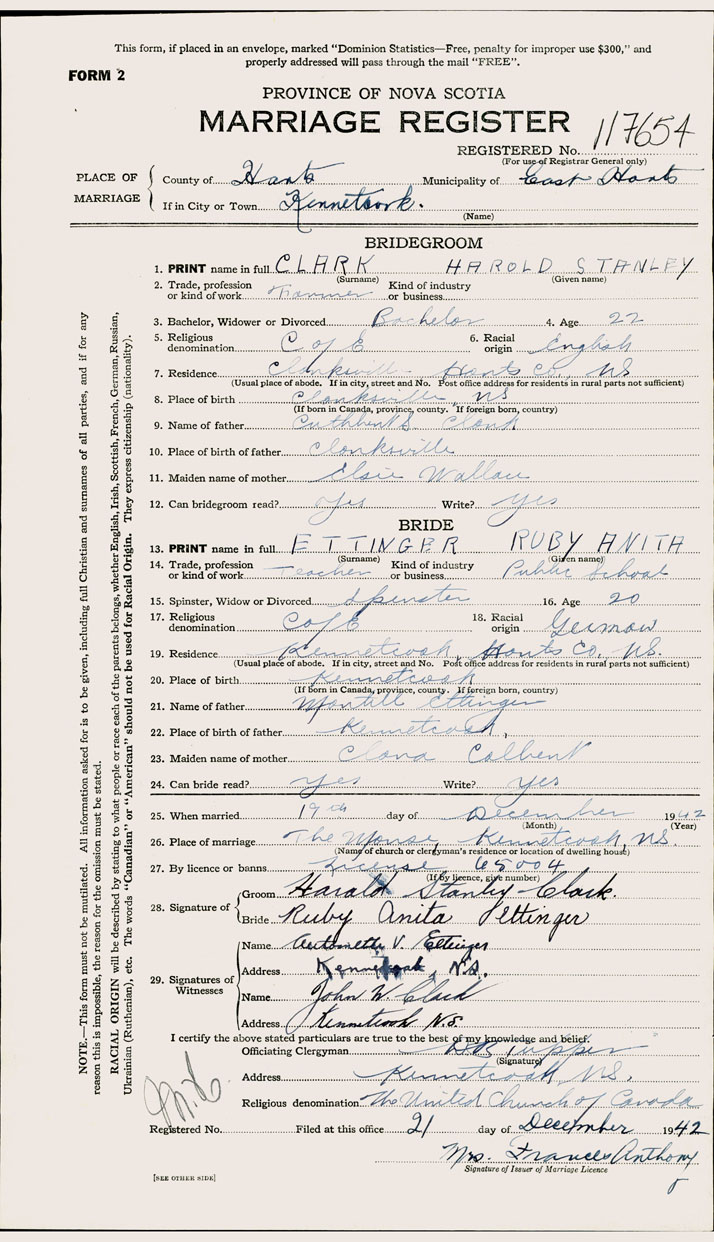 This form, if placed in an envelope, marked "Dominion Statistics—Free, penalty for improper use $300," and
properly addressed will pass through the mail "FREE".
FORM 2
PROVINCE OF NOVA SCOTIA
MARRIAGE REGISTER
REGISTERED No. 117654
(For use of Registrar General only)
PLACE OF MARRIAGE
County of Hants Municipality of East Hants
If in City or Town Kennetcook.
(Name)
BRIDEGROOM
1. PRINT name in full CLARK HAROLD STANLEY
(Surname) (Given name)
2. Trade, profession or kind of work Farmer Kind of industry or business
3. Bachelor, Widower or Divorced Bachelor 4. Age 22
5. Religious denomination C of E 6. Racial origin English
7. Residence Clarksville Hants Co, NS
(Usual place of abode. If in city, street and No. Post office address for residents in rural parts not sufficient)
8. Place of birth Clarksville NS
(If born in Canada, province, county. If foreign born, country)
9. Name of father Cuthbert S Clark
10. Place of birth of father Clarksville
11. Maiden name of mother Elsie Wallace
12. Can bridegroom read? yes Write? yes
BRIDE
13. PRINT name in full ETTINGER RUBY ANITA
(Surname) (Given name)
14. Trade, profession or kind of work Teacher Kind of industry or business Public School
15. Spinster, Widow or Divorced Spinster 16. Age 20
17. Religious denomination C of E 18. Racial origin German
19. Residence Kennetcook, Hants Co, NS.
(Usual place of abode. If in city, street and No. Post office address for residents in rural parts not sufficient)
20. Place of birth Kennetcook
(If born in Canada, province, county. If foreign born, country)
21. Name of father Ettinger
22. Place of birth of father Kennetcook,
23. Maiden name of mother Clara Colbert
24. Can bride read? yes Write? yes
25. When married 19th day of December 1942
(Month) (Year)
26. Place of marriage The Manse, Kennetcook, NS.
(Name of church or clergyman's residence or location of dwelling house)
27. By licence or banns License 65004
(If by licence, give number)
28. Signature of
Groom Harold Stanley Clark.
Bride Ruby Anita Ettinger
29. Signatures of Witnesses
Name Antoinette V. Ettinger
Address Kennetcook, N.S.
Name John W. Clark
Address Kennetcook N.S.
I certify the above stated particulars are true to the best of my knowledge and belief.
Officiating Clergyman Tupper
(Signature)
Address Kennetcook, NS.
Religious denomination The United Church of Canada
Registered No. Filed at this office 21 day of December 1942
Mrs. Frances Anthony
Signature of Issuer of Marriage Licence
[SEE OTHER SIDE]
NOTE.—This form must not be mutilated. All information asked for is to be given, including full Christian and surnames of all parties, and if for any
reason this is impossible, the reason for the omission must be stated.
RACIAL ORIGIN will be described by stating to what people or race each of the parents belongs, whether English, Irish, Scottish, French, German, Russian,
Ukrainian (Ruthenian), etc. The words "Canadian" or "American" should not be used for Racial Origin. They express citizenship (nationality).